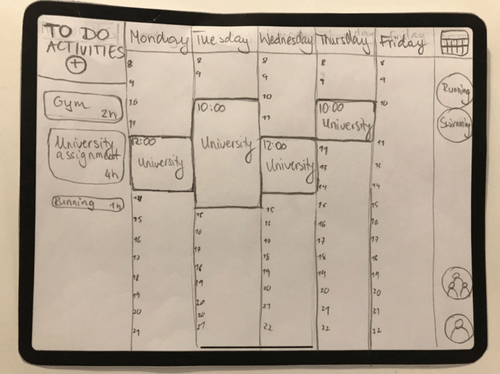 TO DO
ACTIVITIES
+
Gym
2h
University
assignment
4h
Running 1h
Monday
8
9
10
11
12:00
University
15
16
17
18
19
20
21
Tuesday
8
9
10:00
University
15
Wednesday
8
9
10
11
12:00
University
15
16
17
18
19
20
22
Thursday
8
9
10:00
University
14
15
16
17
18
19
20
21
22
Friday
8
9
10
11
12
13
14
15
16
17
18
19
20
21
22
Running
Swimming